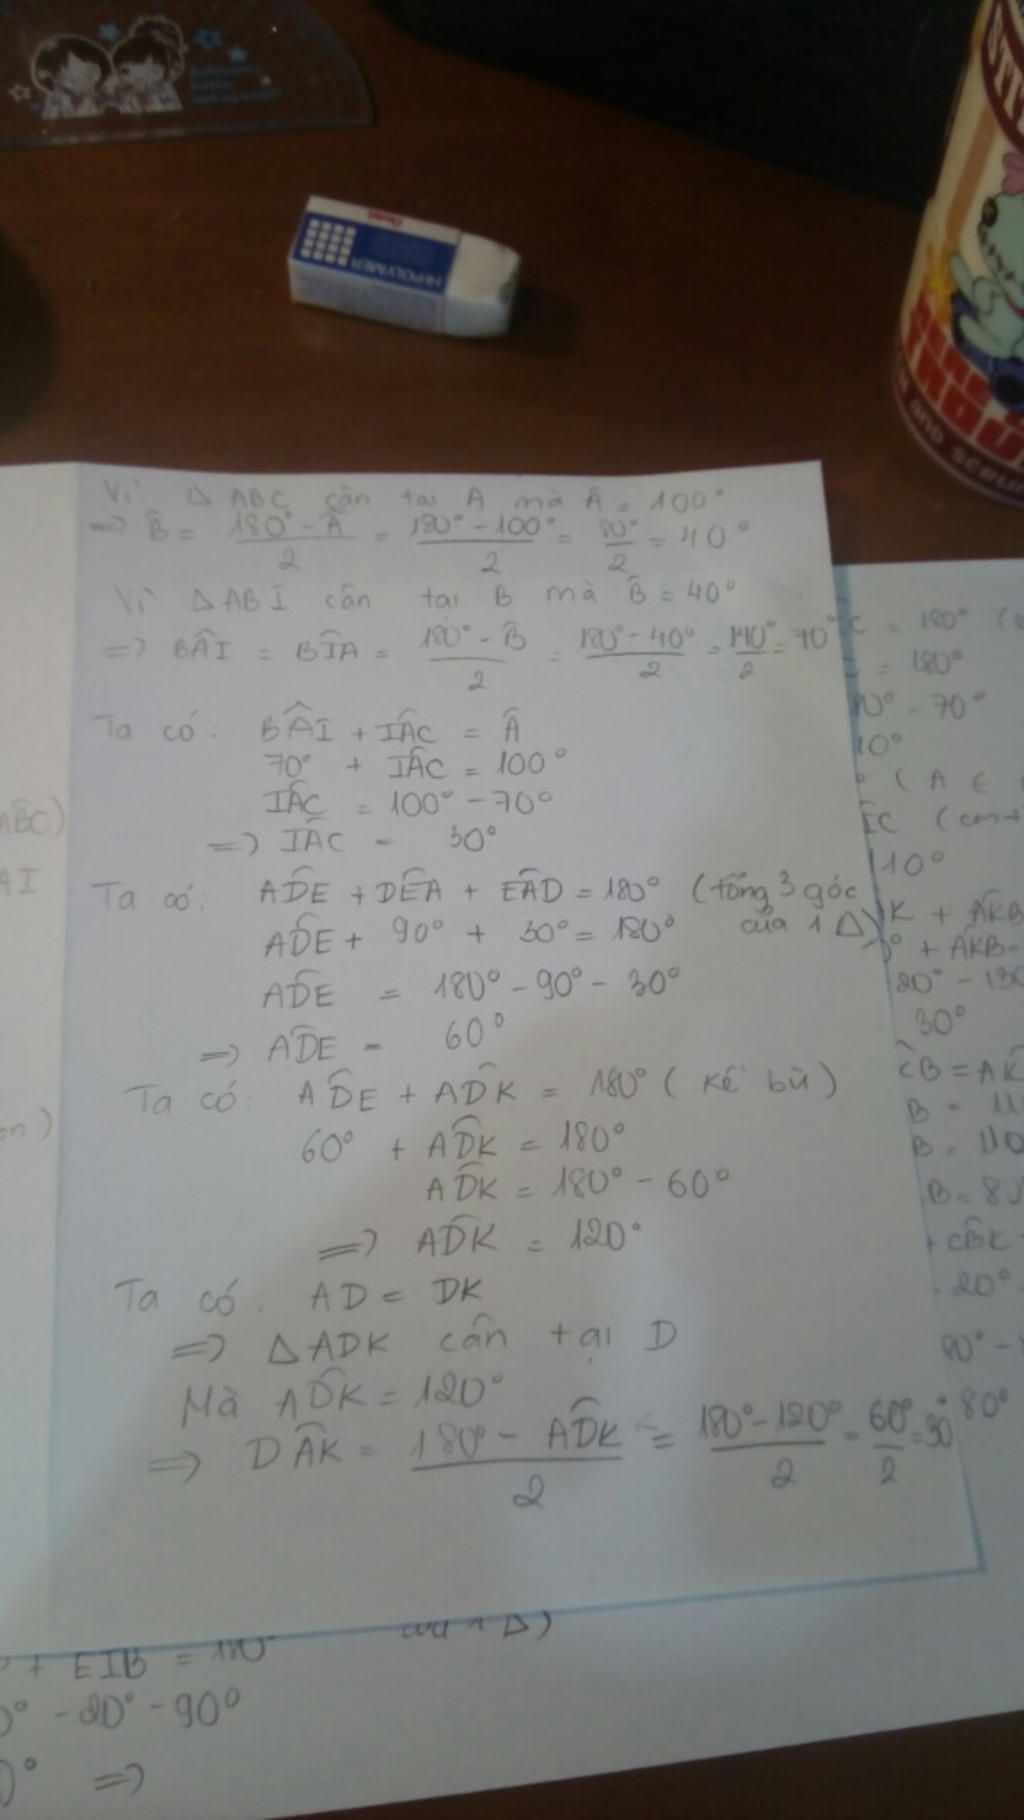 Pentel
HI-POLYMER
AND SCRUM
Vì Δ ABC cân tại A mà Â = 100°
=> B̂ = (180° - Â)/2 = (180° - 100°)/2 = 80°/2 = 40°
Vì ΔABI cân tại B mà B̂ = 40°
=> BÂI = BÎA = (180° - B̂)/2 = (180° - 40°)/2 = 140°/2 = 70°
Ta có: BÂI + IÂC = Â
70° + IÂC = 100°
IÂC = 100° - 70°
=> IÂC = 30°
Ta có: AD̂E + DÊA + EÂD = 180° (tổng 3 góc
của 1 Δ)
AD̂E + 90° + 30° = 180°
AD̂E = 180° - 90° - 30°
=> AD̂E = 60°
Ta có: AD̂E + AD̂K = 180° (kề bù)
60° + AD̂K = 180°
AD̂K = 180° - 60°
=> AD̂K = 120°
Ta có: AD = DK
=> ΔADK cân tại D
Mà AD̂K = 120°
=> DÂK = (180° - AD̂K)/2 = (180° - 120°)/2 = 60°/2 = 30°
ABC)
AI
C = 180°
= 180°
- 70°
10°
( A ∈
IC (cm
110°
K + AK̂B
+ AK̂B =
30°
ĈB = AK
B = 110
B = 80
+ CB̂K
20°
80°
+ EIB = 180°
- 20° - 90°
=>